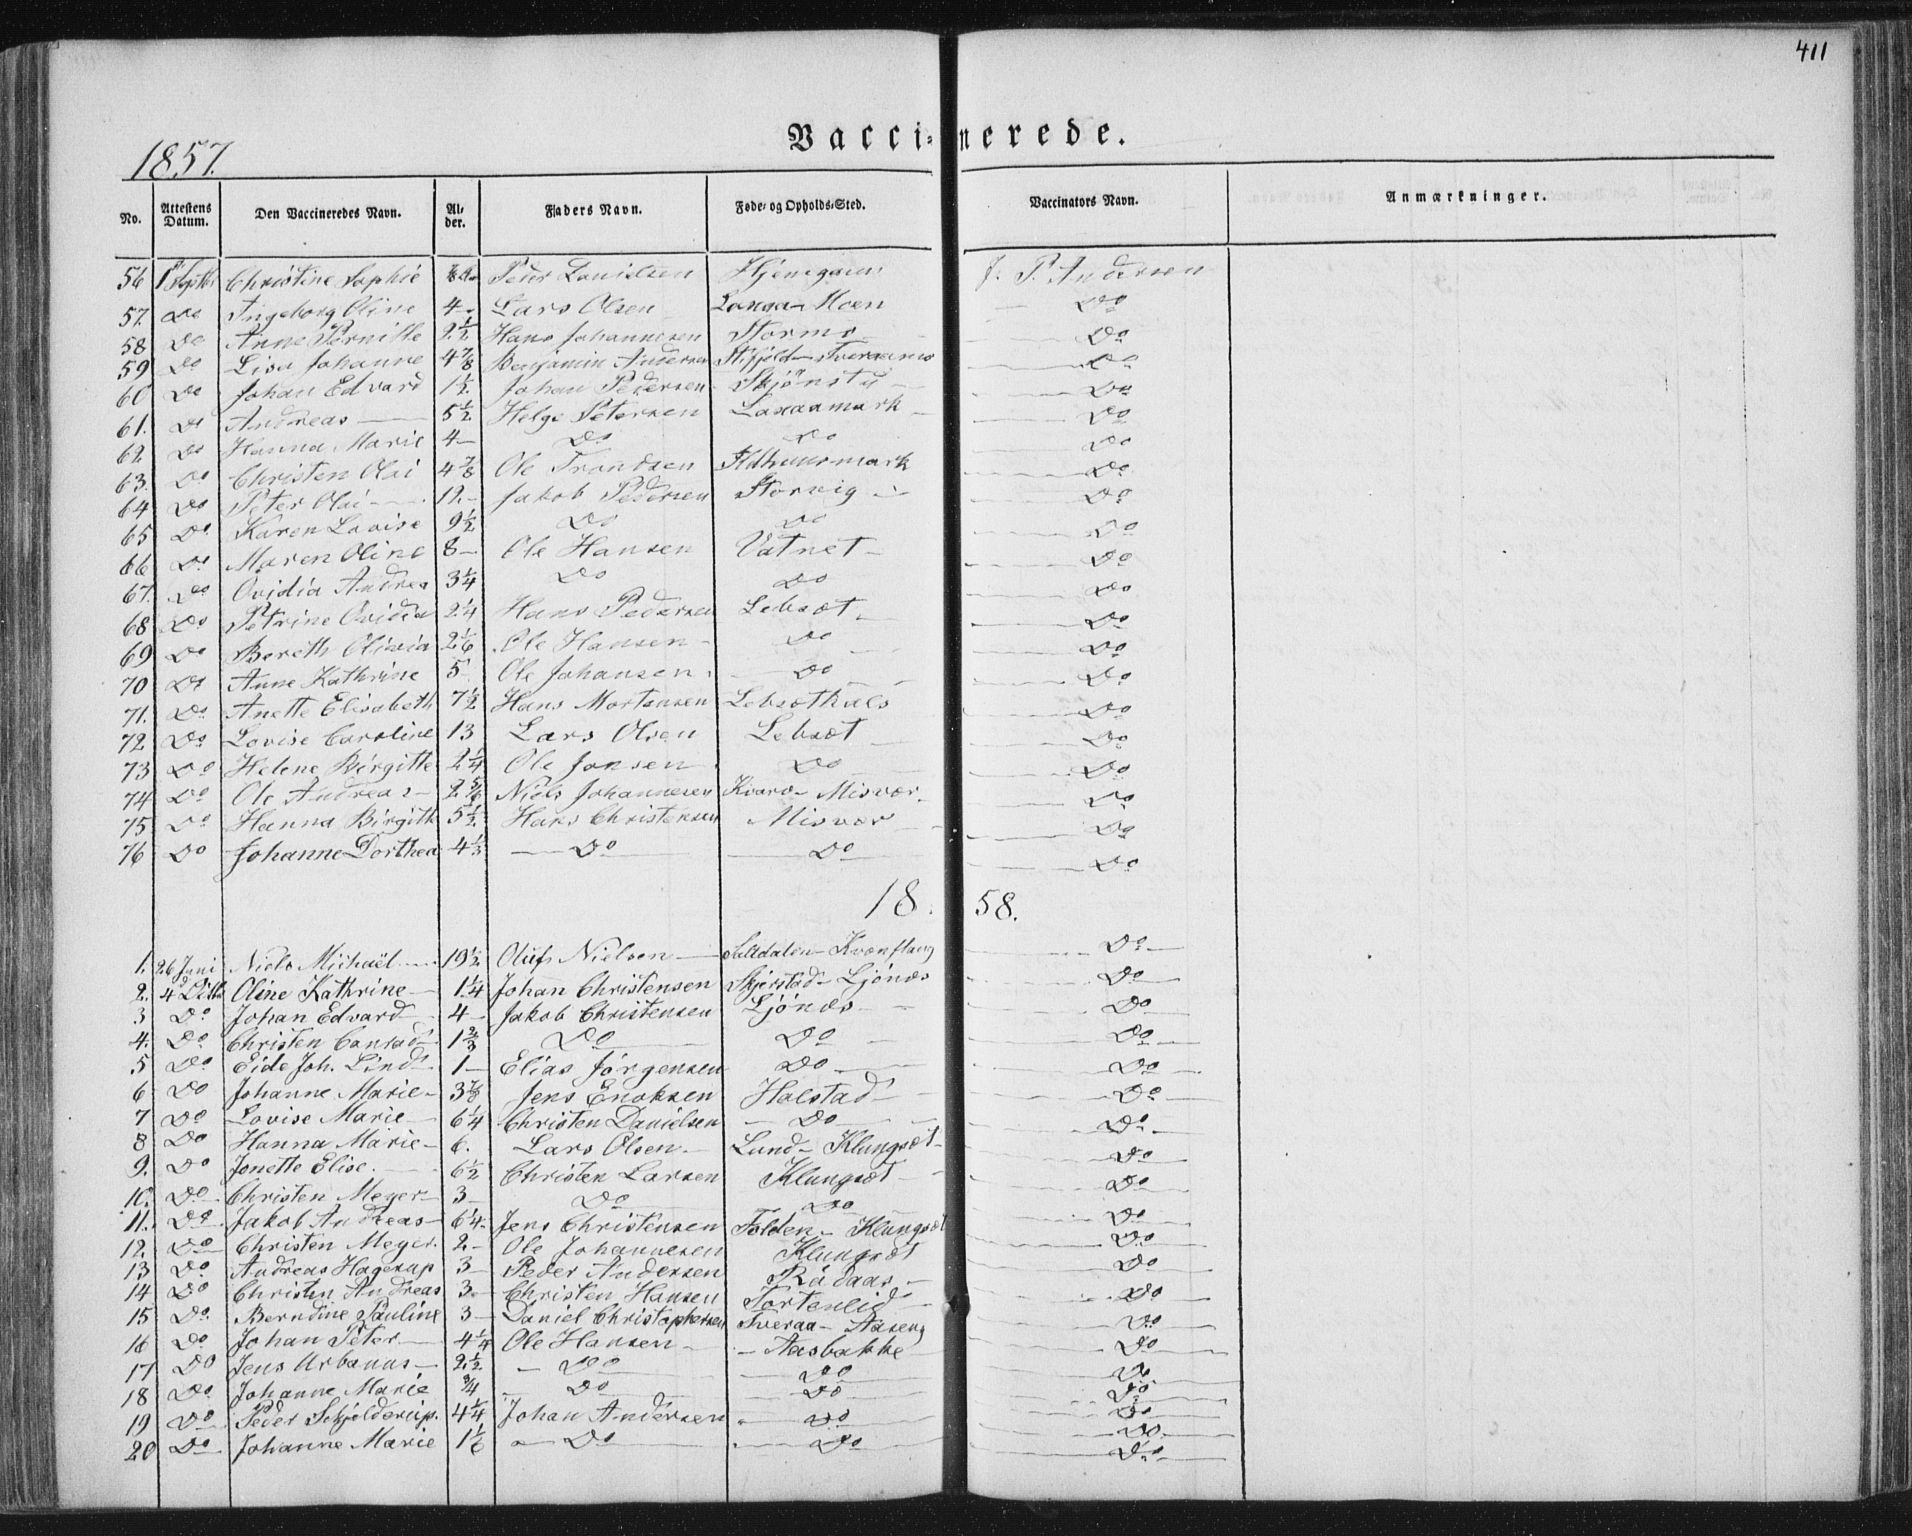 411
1857.
Vaccinerede.
No. Attestens Datum. Den Vaccineredes Navn. Alder. Faders Navn. Føde- og Opholds-Sted. Vaccinators Navn. Anmærkninger.
56 1 Septbr Christine Sophie Peter Danielsen J. P. Andersen
57. Do Ingeborg Oline 4 - Lars Olsen Langa - Moen Do
58 Do Anne Pernille 2 1/2 Hans Johannesen Stormo Do
59 Do Lisa Johanne 4 7/8 Benjamin Andersen Do
60 Do Johan Edvard 1 1/2 Johan Pedersen Skjönsty - Do
61. Do Andreas 5 1/2 Helge Petersen Laxaamark - Do
62. Do Hanna Marie 4 - Do Do Do
63. Do Christen Olai 4 7/8 Ole Trondsen Do
64 Do Peter Olai - 12. - Jakob Pedersen Storvig - Do
65 Do Karen Lovise 9 1/2 Do Do Do
66 Do Maren Oline 8 - Ole Hansen Vatnet - Do
67. Do Ovidia Andrea 3 1/4 Do Do Do
68 Do Petrine Ovidia 2 1/4 Hans Pedersen Lebsæt - Do
69 Do Bereth Olivia 2 1/6 Ole Hansen - Do Do
70 Do Anne Kathrine 5 Ole Johansen. Do Do
71. Do Anette Elisabeth 7 1/2 Hans Mortensen Lebsæthals Do
72 Do Lovise Caroline 13 Lars Olsen Lebsæt Do
73 Do Helene Birgitte 2 1/4 Ole Jonsen - Do Do
74 Do Ole Andreas - 2 5/6 Niels Johannesen Kvarv - Misvær. Do
75 Do Hanna Birgith 5 1/2 Hans Christensen Misvær Do
76 Do Johanne Dorthea 4 1/3 - Do - Do Do
1858.
1. 26 Juni Niels Michaël 19 1/2 Oluf Nielsen - Saltdalen - Kvænflaug Do
2. 4 Oline Kathrine - 1 1/4 Johan Christensen Skjerstad - Ljönæs Do
3 Do Johan Edvard 4 - Jakob Christensen Ljönæs - Do
4. Do Christen Conrad - 1 2/3 Do Do Do
5 Do Eide Joh. Lind 1 - Elias Jörgensen Do Do
6 Do Johanne Marie - 3 Jens Enoksen Halstad - Do
7 Do Lovise Marie - 6 1/4 Christen Danielsen Do Do
8 Do Hanna Marie - 6. Lars Olsen - Lund - Klungsæt - Do
9. Do Jonette Elise. 6 1/2 Christen Larsen Klungsæt - Do
10. Do Christen Meyer - 3 - Do Do Do
11. Do Jakob Andreas - 6 1/4. Jens Christensen Folden - Klungsæt Do
12. Do Christen Meyer. 2. - Ole Johannesen Klungsæt Do
13 Do Andreas Hagerup 3 - Peder Andersen Rödaas - Do
14 Do Christen Andreas 3 - Christen Hansen Tortenlid Do
15 Do Berndine Pauline 3 - Daniel Christophersen Tveraa - Aaseng Do
16 Do Johan Peter 4 1/4 Ole Hansen - - Aasbakke Do
17 Do Jens Urbanus - 2 1/2 - Do Do Do
18 Do Johanne Marie 3/4 - Do Do Do
19 Do Peder Schjelderup. 4 1/4 Johan Andersen Do Do
20 Do Johanne Marie 1 1/6 - Do - Do Do